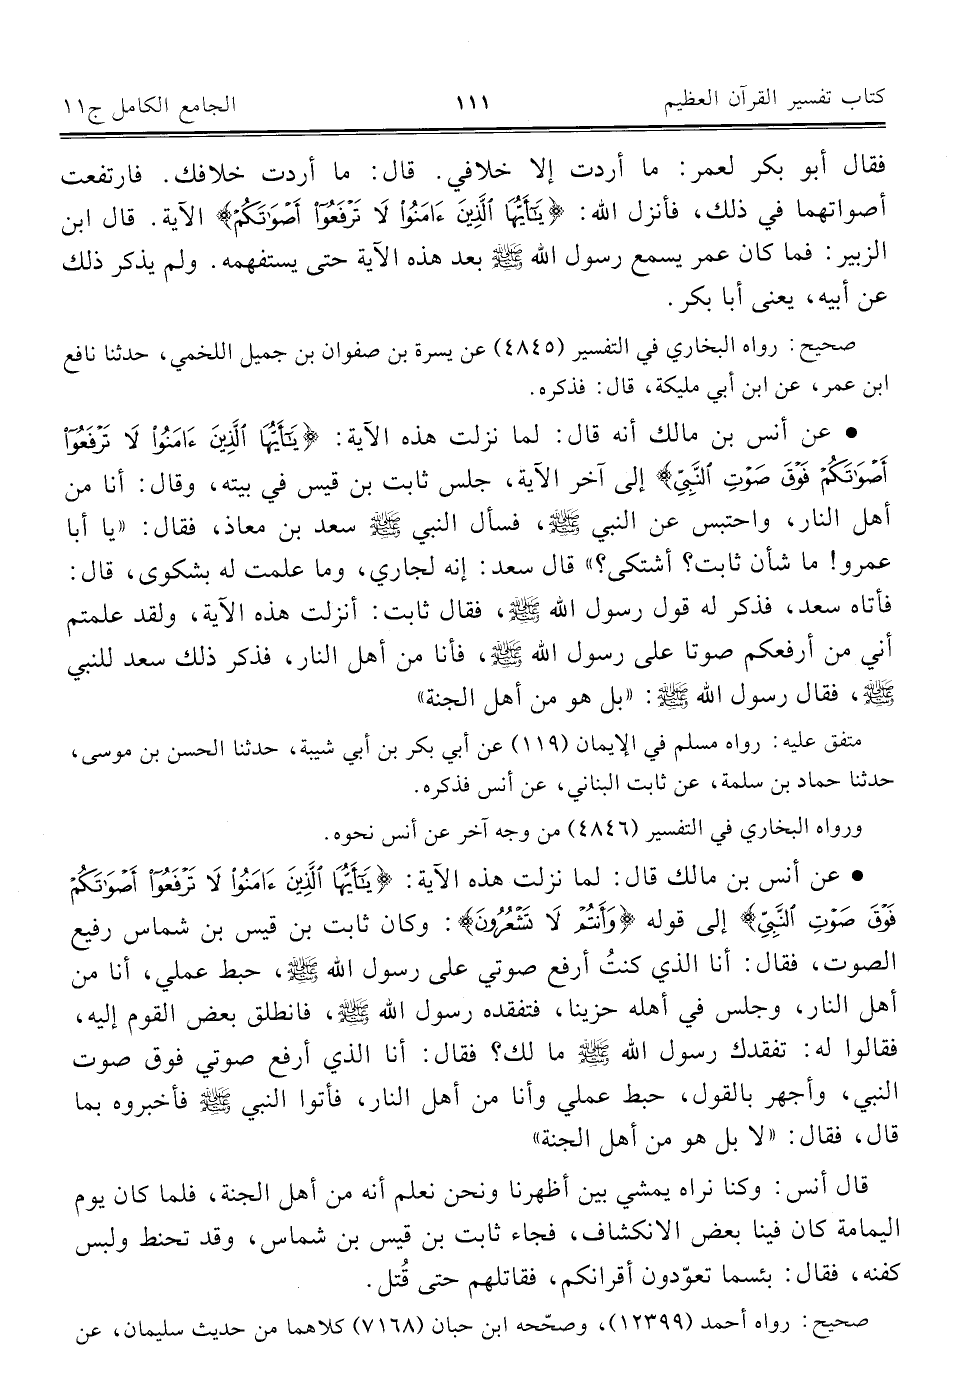 كتاب تفسير القرآن العظيم ١١١ الجامع الكامل ج١١
فقال أبو بكر لعمر: ما أردت إلا خلافي. قال: ما أردت خلافك. فارتفعت
أصواتهما في ذلك، فأنزل الله: ﴿يَٰٓأَيُّهَا ٱلَّذِينَ ءَامَنُوا۟ لَا تَرْفَعُوٓا۟ أَصْوَٰتَكُمْ﴾ الآية. قال ابن
الزبير: فما كان عمر يسمع رسول الله ﷺ بعد هذه الآية حتى يستفهمه. ولم يذكر ذلك
عن أبيه، يعنى أبا بكر.
صحيح: رواه البخاري في التفسير (٤٨٤٥) عن يسرة بن صفوان بن جميل اللخمي، حدثنا نافع
ابن عمر، عن ابن أبي مليكة، قال: فذكره.
• عن أنس بن مالك أنه قال: لما نزلت هذه الآية: ﴿يَٰٓأَيُّهَا ٱلَّذِينَ ءَامَنُوا۟ لَا تَرْفَعُوٓا۟
أَصْوَٰتَكُمْ فَوْقَ صَوْتِ ٱلنَّبِيِّ﴾ إلى آخر الآية، جلس ثابت بن قيس في بيته، وقال: أنا من
أهل النار، واحتبس عن النبي ﷺ، فسأل النبي ﷺ سعد بن معاذ، فقال: «يا أبا
عمرو! ما شأن ثابت؟ أشتكى؟» قال سعد: إنه لجاري، وما علمت له بشكوى، قال:
فأتاه سعد، فذكر له قول رسول الله ﷺ، فقال ثابت: أنزلت هذه الآية، ولقد علمتم
أني من أرفعكم صوتا على رسول الله ﷺ، فأنا من أهل النار، فذكر ذلك سعد للنبي
ﷺ، فقال رسول الله ﷺ: «بل هو من أهل الجنة»
متفق عليه: رواه مسلم في الإيمان (١١٩) عن أبي بكر بن أبي شيبة، حدثنا الحسن بن موسى،
حدثنا حماد بن سلمة، عن ثابت البناني، عن أنس فذكره.
ورواه البخاري في التفسير (٤٨٤٦) من وجه آخر عن أنس نحوه.
• عن أنس بن مالك قال: لما نزلت هذه الآية: ﴿يَٰٓأَيُّهَا ٱلَّذِينَ ءَامَنُوا۟ لَا تَرْفَعُوٓا۟ أَصْوَٰتَكُمْ
فَوْقَ صَوْتِ ٱلنَّبِيِّ﴾ إلى قوله ﴿وَأَنتُمْ لَا تَشْعُرُونَ﴾: وكان ثابت بن قيس بن شماس رفيع
الصوت، فقال: أنا الذي كنتُ أرفع صوتي على رسول الله ﷺ، حبط عملي، أنا من
أهل النار، وجلس في أهله حزينا، فتفقده رسول الله ﷺ، فانطلق بعض القوم إليه،
فقالوا له: تفقدك رسول الله ﷺ ما لك؟ فقال: أنا الذي أرفع صوتي فوق صوت
النبي، وأجهر بالقول، حبط عملي وأنا من أهل النار، فأتوا النبي ﷺ فأخبروه بما
قال، فقال: «لا بل هو من أهل الجنة»
قال أنس: وكنا نراه يمشي بين أظهرنا ونحن نعلم أنه من أهل الجنة، فلما كان يوم
اليمامة كان فينا بعض الانكشاف، فجاء ثابت بن قيس بن شماس، وقد تحنط ولبس
كفنه، فقال: بئسما تعوّدون أقرانكم، فقاتلهم حتى قُتل.
صحيح: رواه أحمد (١٢٣٩٩)، وصحّحه ابن حبان (٧١٦٨) كلاهما من حديث سليمان، عن